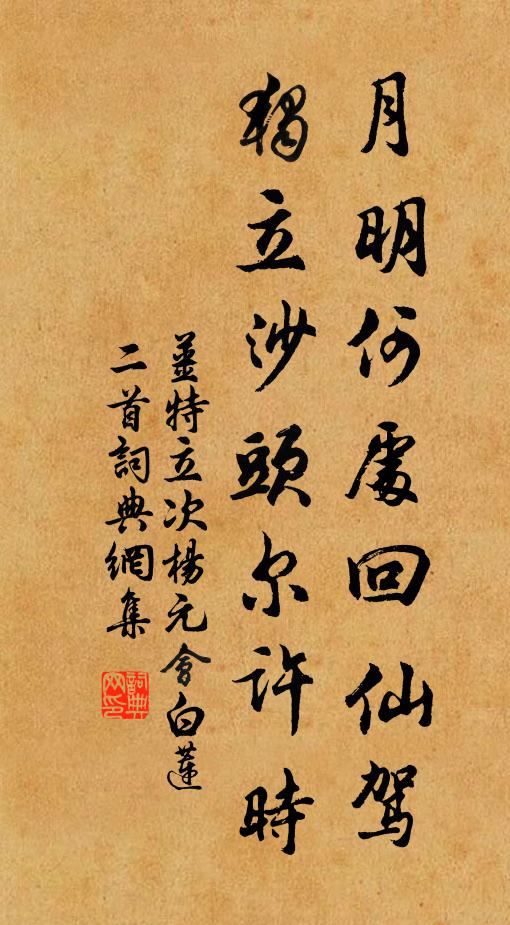 月明何處回仙駕
獨立沙頭尔許時
薑特立次楊元會白蓮
二首詞典網集
詞典網印